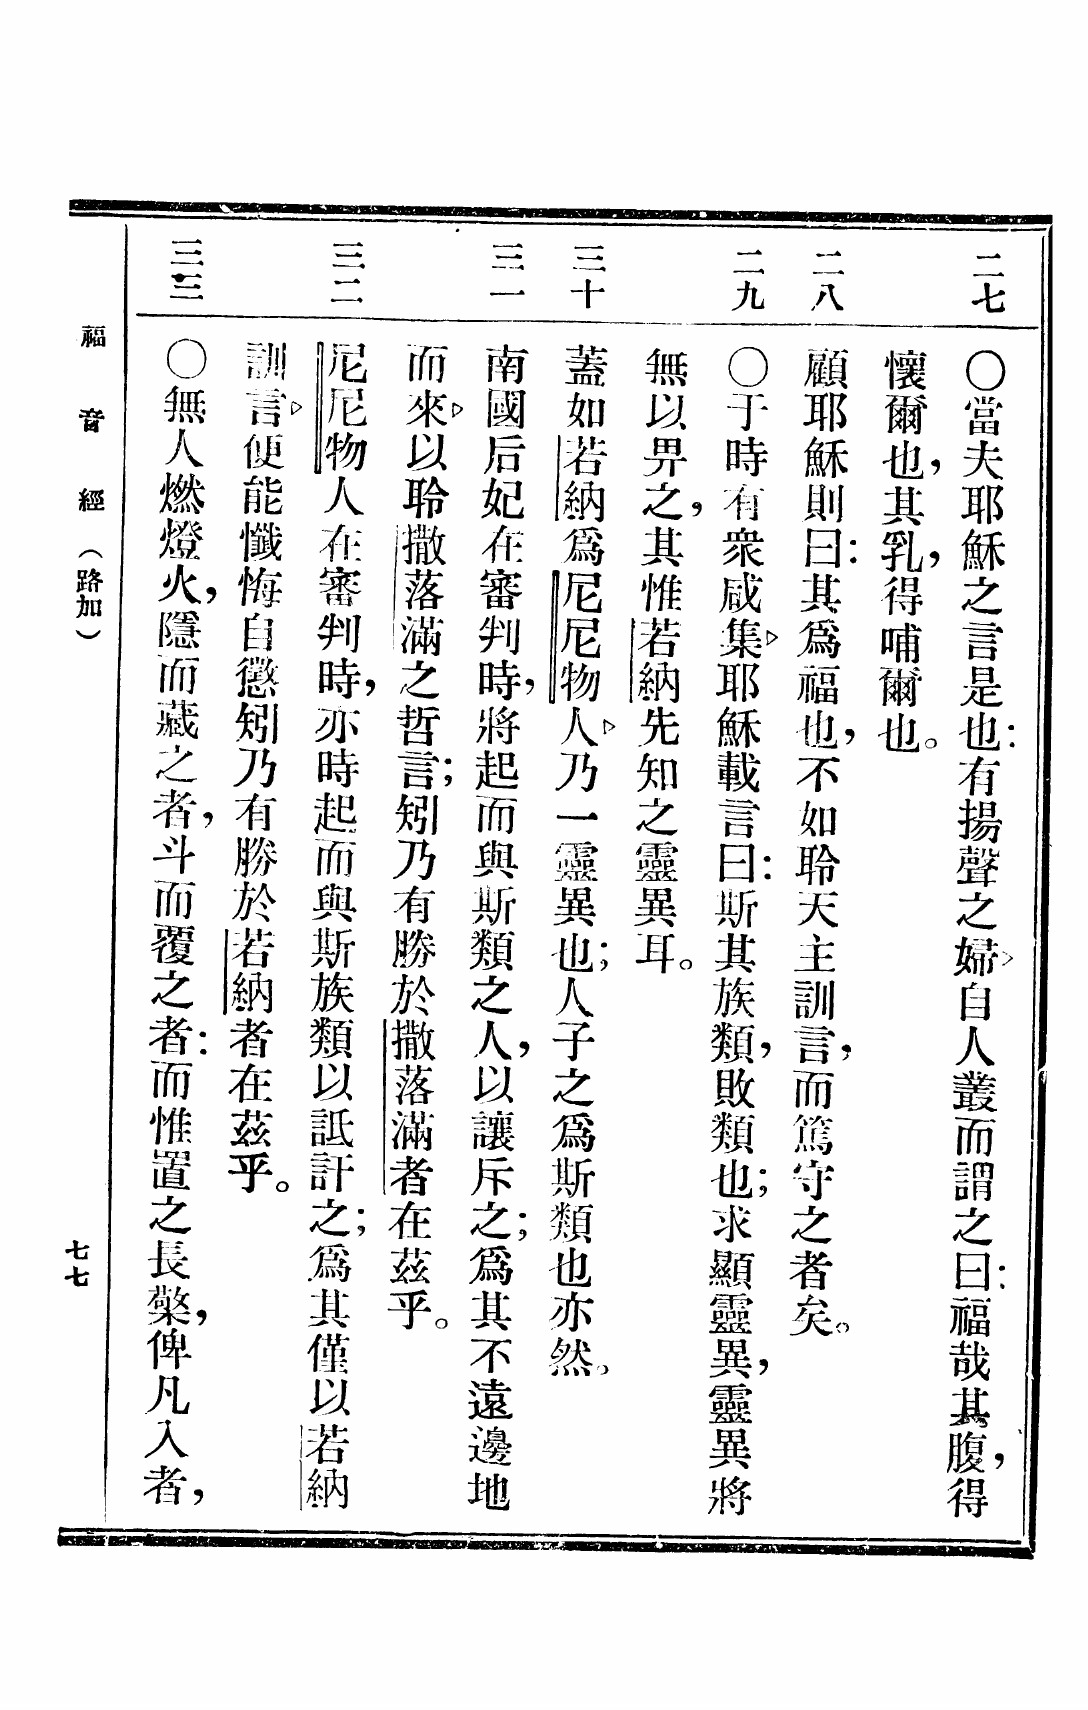 二七
〇當夫耶穌之言是也：有揚聲之婦▷自人叢而謂之曰：福哉其腹，得
懷爾也，其乳，得哺爾也。
二八
顧耶穌則曰：其爲福也，不如聆天主訓言，而篤守之者矣。
二九
〇于時有衆咸集▷耶穌載言曰：斯其族類，敗類也；求顯靈異，靈異將
無以畀之，其惟若納先知之靈異耳。
三十
蓋如若納爲尼尼物人▷乃一靈異也；人子之爲斯類也亦然。
三一
南國后妃在審判時，將起而與斯類之人，以讓斥之；爲其不遠邊地
而來▷以聆撒落滿之哲言；矧乃有勝於撒落滿者在茲乎。
三二
尼尼物人在審判時，亦時起而與斯族類以詆訐之；爲其僅以若納
訓言▷便能懺悔自懲矧乃有勝於若納者在茲乎。
三三
〇無人燃燈火，隱而藏之者，斗而覆之者：而惟置之長檠，俾凡入者，
福音經（路加）
七七